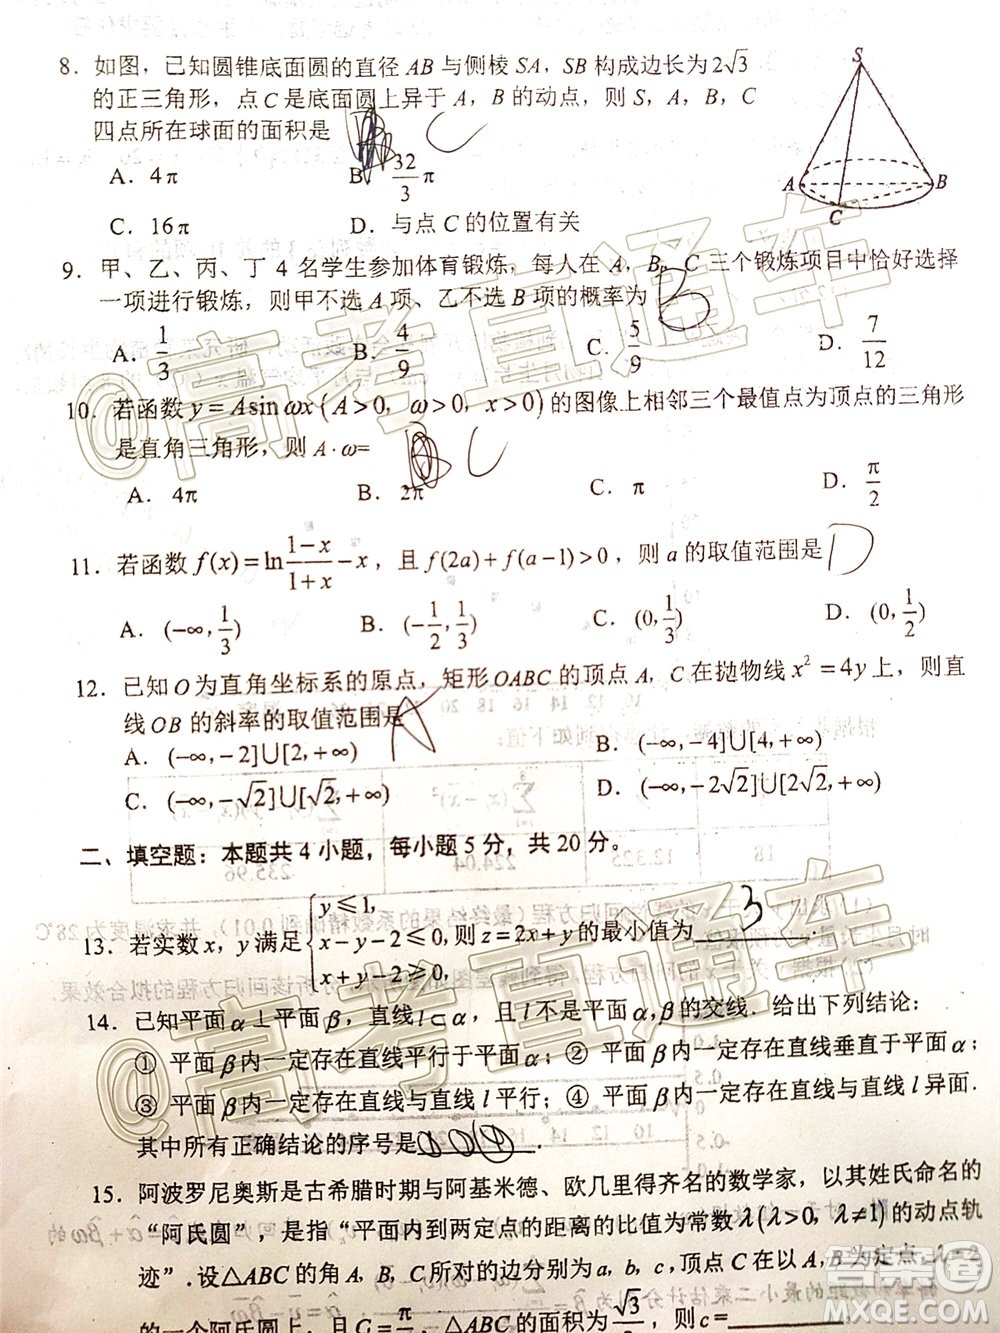 8．如图，已知圆锥底面圆的直径 AB 与侧棱 SA，SB 构成边长为 2√3
的正三角形，点 C 是底面圆上异于 A，B 的动点，则 S，A，B，C
四点所在球面的面积是 C
A．4π B．32/3 π
C．16π D．与点 C 的位置有关
S
A
B
C
9．甲、乙、丙、丁 4 名学生参加体育锻炼，每人在 A，B，C 三个锻炼项目中恰好选择
一项进行锻炼，则甲不选 A 项、乙不选 B 项的概率为 B
A．1/3 B．4/9 C．5/9 D．7/12
10．若函数 y=Asinωx(A>0，ω>0，x>0)的图像上相邻三个最值点为顶点的三角形
是直角三角形，则 A·ω= C
A．4π B．2π C．π D．π/2
11．若函数 f(x)=ln (1-x)/(1+x) -x，且 f(2a)+f(a-1)>0，则 a 的取值范围是 D
A．(-∞,1/3) B．(-1/2,1/3) C．(0,1/3) D．(0,1/2)
12．已知 O 为直角坐标系的原点，矩形 OABC 的顶点 A，C 在抛物线 x²=4y 上，则直
线 OB 的斜率的取值范围是 A
A．(-∞,-2]∪[2,+∞) B．(-∞,-4]∪[4,+∞)
C．(-∞,-√2]∪[√2,+∞) D．(-∞,-2√2]∪[2√2,+∞)
二、填空题：本题共 4 小题，每小题 5 分，共 20 分。
13．若实数 x，y 满足{y≤1, x-y-2≤0, x+y-2≥0, 则 z=2x+y 的最小值为 3．
14．已知平面 α⊥平面 β，直线 l⊂α，且 l 不是平面 α，β 的交线．给出下列结论：
① 平面 β 内一定存在直线平行于平面 α；② 平面 β 内一定存在直线垂直于平面 α；
③ 平面 β 内一定存在直线与直线 l 平行；④ 平面 β 内一定存在直线与直线 l 异面．
其中所有正确结论的序号是 ①②④．
15．阿波罗尼奥斯是古希腊时期与阿基米德、欧几里得齐名的数学家，以其姓氏命名的
“阿氏圆”，是指“平面内到两定点的距离的比值为常数 λ(λ>0，λ≠1)的动点轨
迹”．设△ABC 的角 A，B，C 所对的边分别为 a，b，c，顶点 C 在以 A，B 为定点，λ=2
的一个阿氏圆上，且 C=π/ ，△ABC 的面积为 √3/ ，则 c=
@高考直通车
@高考直通车
答案圈
MXQE.COM